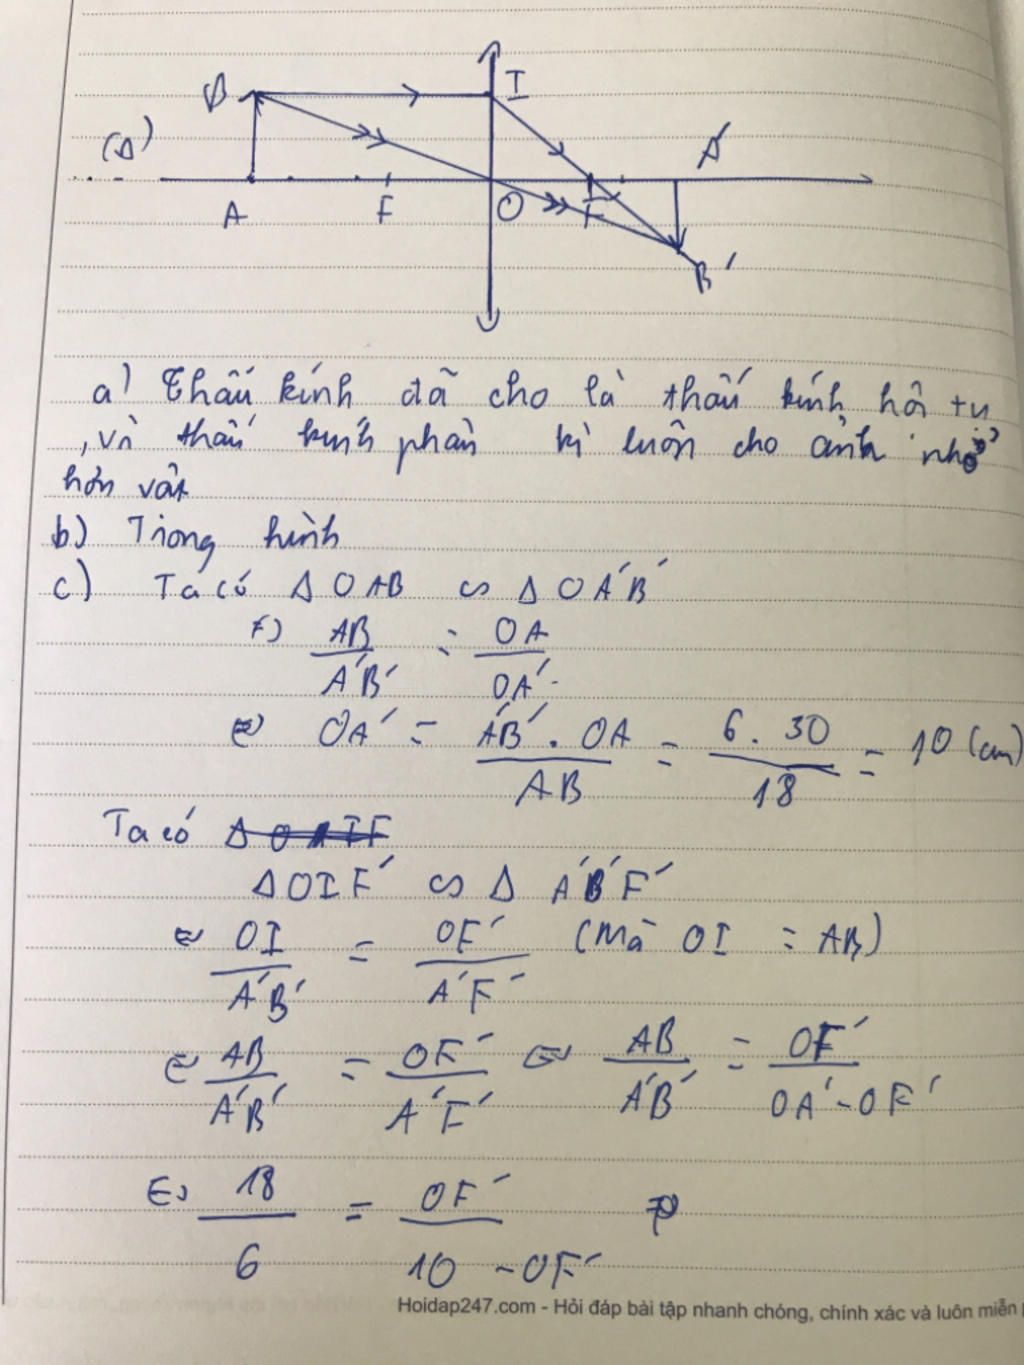 B I
(Δ) A'
A F O F'
B'
a) Thấu kính đã cho là thấu kính hội tụ
, vì thấu kính phân kì luôn cho ảnh nhỏ
hơn vật
b) Trong hình
c) Ta có Δ OAB ∽ Δ OA'B'
=> AB/A'B' = OA/OA'
<=> OA' = A'B' . OA / AB = 6 . 30 / 18 = 10 (cm)
Ta có
Δ OIF' ∽ Δ A'B'F'
<=> OI/A'B' = OF'/A'F' (Mà OI = AB)
<=> AB/A'B' = OF'/A'F' <=> AB/A'B' = OF'/OA' - OF'
<=> 18/6 = OF'/10 - OF'
Hoidap247.com - Hỏi đáp bài tập nhanh chóng, chính xác và luôn miễn